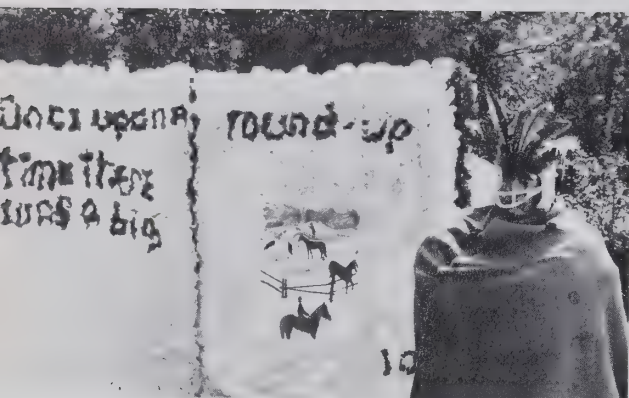 Once upon a
time there
was a big
round-up
10